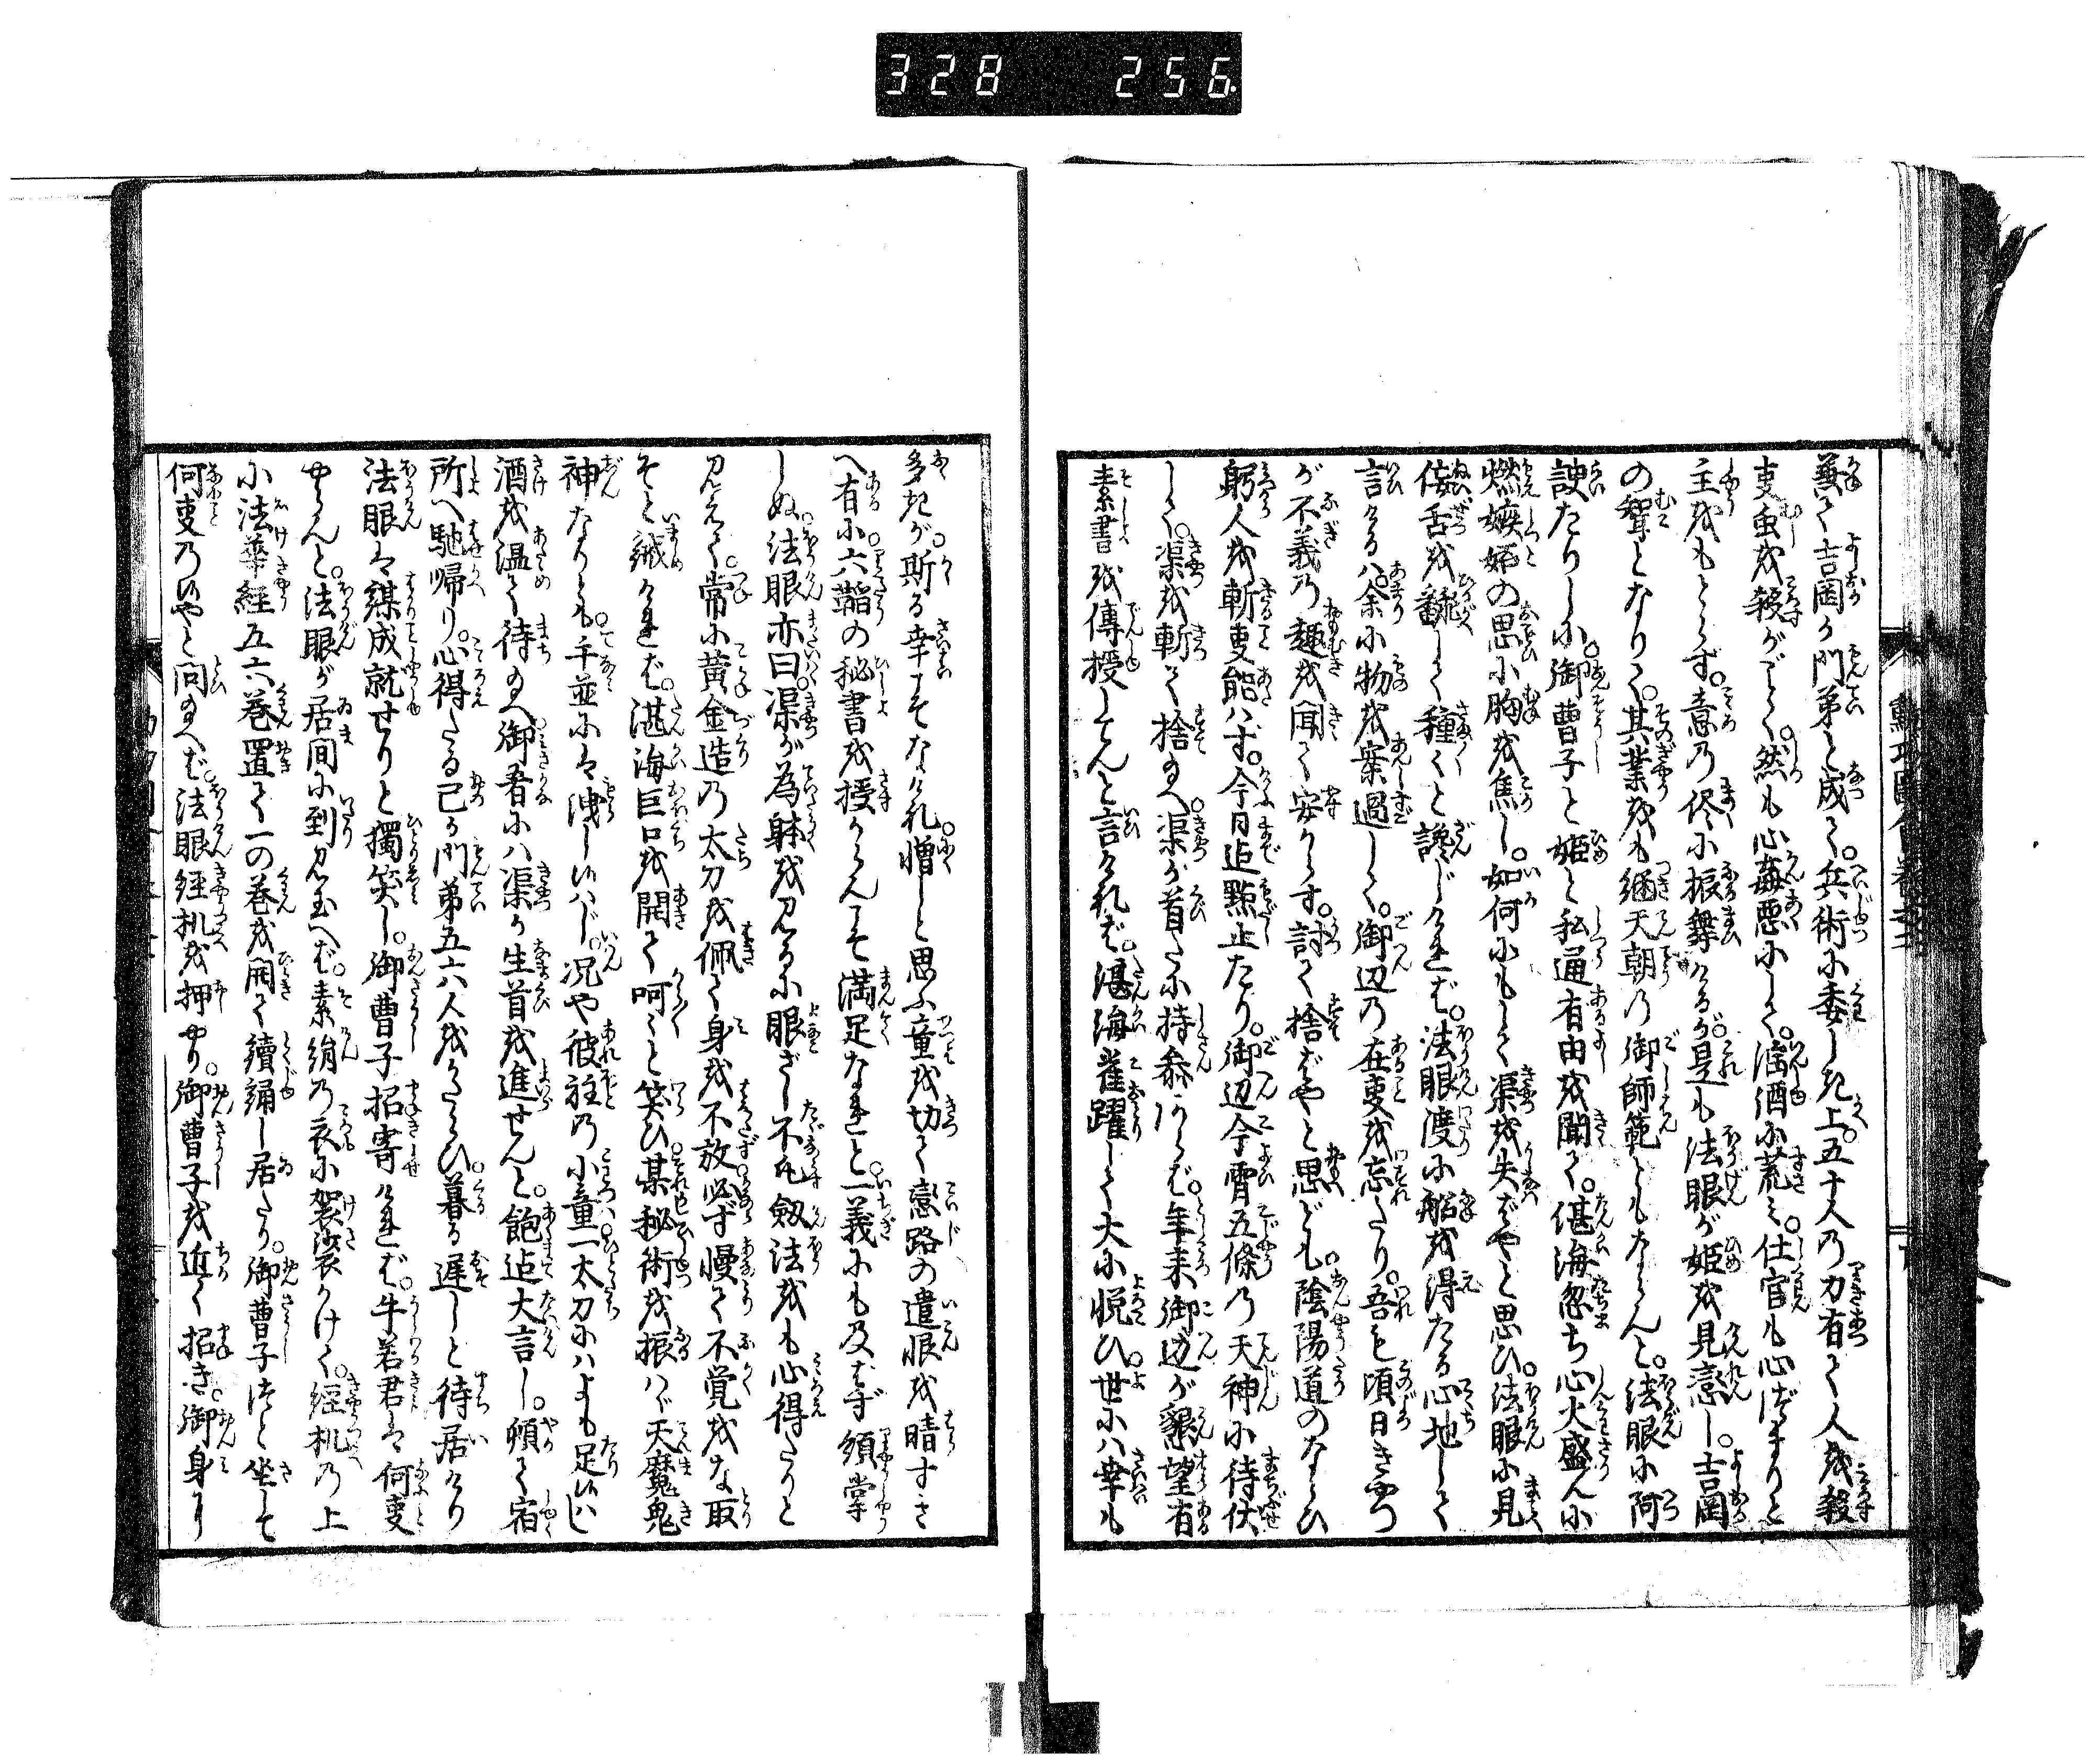 328 256
兼て吉岡が門弟と成て。兵術に委しき上。五十人の力有て人を殺
事虫を殺がごとく。然も心姦悪にして。淫酒に荒み。仕官も心に
主をもとらず。意の侭に振舞けるが。是も法眼が姫を見恋し。吉岡
の聟となりて。其業をも継天朝の御師範ともならんと。法眼に阿
諛たりしに。御曹子と姫と私通有由を聞て。堪海忽ち心火盛んに
燃嫉妬の思に胸を焦し。如何にもして渠を失ばやと思ひ。法眼に見
佞舌を飜して種々と讒じければ。法眼渡に船を得たる心地して
言けるハ。余に物を案過して。御辺の在事を忘たり。吾も頃日きやつ
が不義の趣を聞て安からず。討て捨ばやと思ども。陰陽道のならひ
躬人を斬事能ハず。今日迄黙止たり。御辺今宵五條の天神に待伏
して。渠を斬て捨給へ。渠が首だに持参あらば。年来御辺が懇望有
素書を傳授してんと言ければ。湛海雀躍して大に悦ひ。世にハ幸も
多きが。斯る幸こそなけれ。憎しと思ふ童を切て恋路の遺恨を晴すさ
へ有に。六韜の秘書を授からんこそ満足なれと。一義にも及ばず領掌
しぬ。法眼亦曰。渠が為躰を見るに眼ざし不凡。劔法をも心得たりと
見えて。常に黄金造の太刀を佩て身を不放。必ず慢て不覚をな取
そと誡ければ。湛海巨口を開て呵々と笑ひ。某秘術を振ハヾ天魔鬼
神なりとも。手並にハ洩し候ハじ。况や彼程の小童一太刀にハよも足候ハじ
酒を温て待給へ。御肴にハ渠が生首を進せんと。飽迄大言し。頓て宿
所へ馳帰り。心得たる己が門弟五六人をかたらひ。暮る遅しと待居けり
法眼は謀成就せりと獨笑し。御曹子招寄ければ。牛若君は何事
やらんと。法眼が居間に到見玉へば。素絹の衣に袈裟かけて。経机の上
に法華経五六巻置て一の巻を開て續誦し居たり。御曹子つと坐して
何事の候やと問給へば。法眼経机を押やり。御曹子を近く招き。御身に